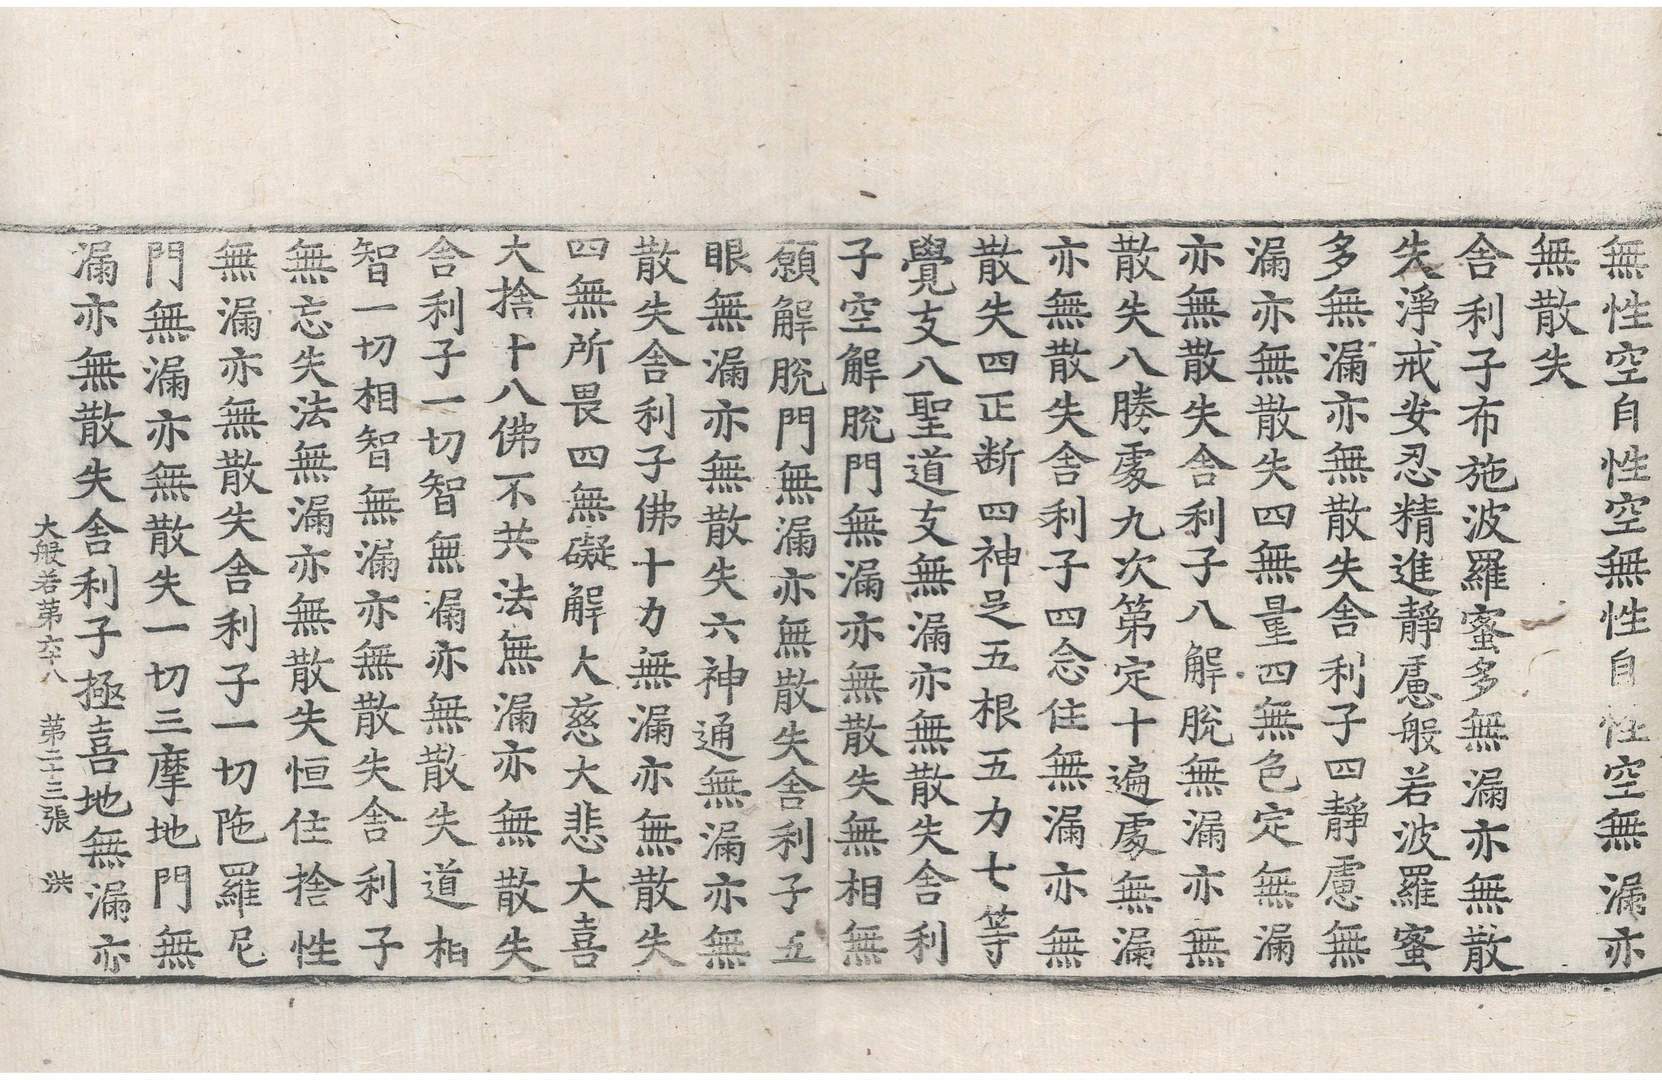 無性空自性空無性自性空無漏亦
無散失
舍利子布施波羅蜜多無漏亦無散
失淨戒安忍精進靜慮般若波羅蜜
多無漏亦無散失舍利子四靜慮無
漏亦無散失四無量四無色定無漏
亦無散失舍利子八解脫無漏亦無
散失八勝處九次第定十遍處無漏
亦無散失舍利子四念住無漏亦無
散失四正斷四神足五根五力七等
覺支八聖道支無漏亦無散失舍利
子空解脫門無漏亦無散失無相無
願解脫門無漏亦無散失舍利子五
眼無漏亦無散失六神通無漏亦無
散失舍利子佛十力無漏亦無散失
四無所畏四無礙解大慈大悲大喜
大捨十八佛不共法無漏亦無散失
舍利子一切智無漏亦無散失道相
智一切相智無漏亦無散失舍利子
無忘失法無漏亦無散失恒住捨性
無漏亦無散失舍利子一切陁羅尼
門無漏亦無散失一切三摩地門無
漏亦無散失舍利子極喜地無漏亦
大般若第六十八 第二十三張 洪